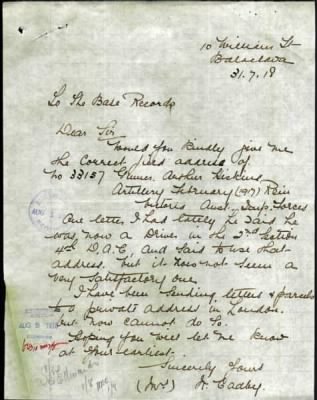 10 William St
Balaclava
31.7.18
To The Base Records
Dear Sir
Would you kindly give me
the correct field address of
No 33157 Gunner Arthur
Artillery February (1917) Rein
Aust. Forces
One letter I had lately he said he
was now a Driver in the 2nd Section
4th D.A.C. and said to use that
address. but it does not seem a
very satisfactory one
I have been sending letters & parcels
to a private address in London.
but now cannot do so.
Hoping you will let me know
at your earliest.
Sincerely Yours
(Mrs) Eadby
AUG
AUG 5 1918